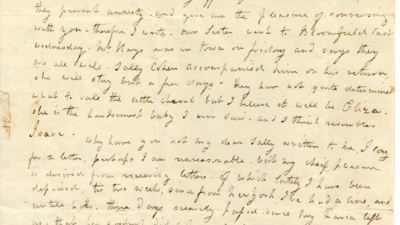 they prevent anxiety. and give me the pleasure of conversing
with you. therefore I write. our Sister went to Bloomfield last
wednesday. Mr Hays was in town on friday and says they
are all well. Sally Cohen accompanied him on his return
she will stay but a few days. they have not quite determined
what to call the little cherub but I believe it will be Eliza.
she is the handsomest baby I ever saw. and I think resembles
Isaac.
why have you not my dear Sally written to me. I long
for a letter. perhaps I am unreasonable. but my cheif pleasure
is derived from receiving letters. of which lately I have been
deprived. tis two weeks since from New York I've had a line and
untill now. those days scarcely passed. since
left
me. that